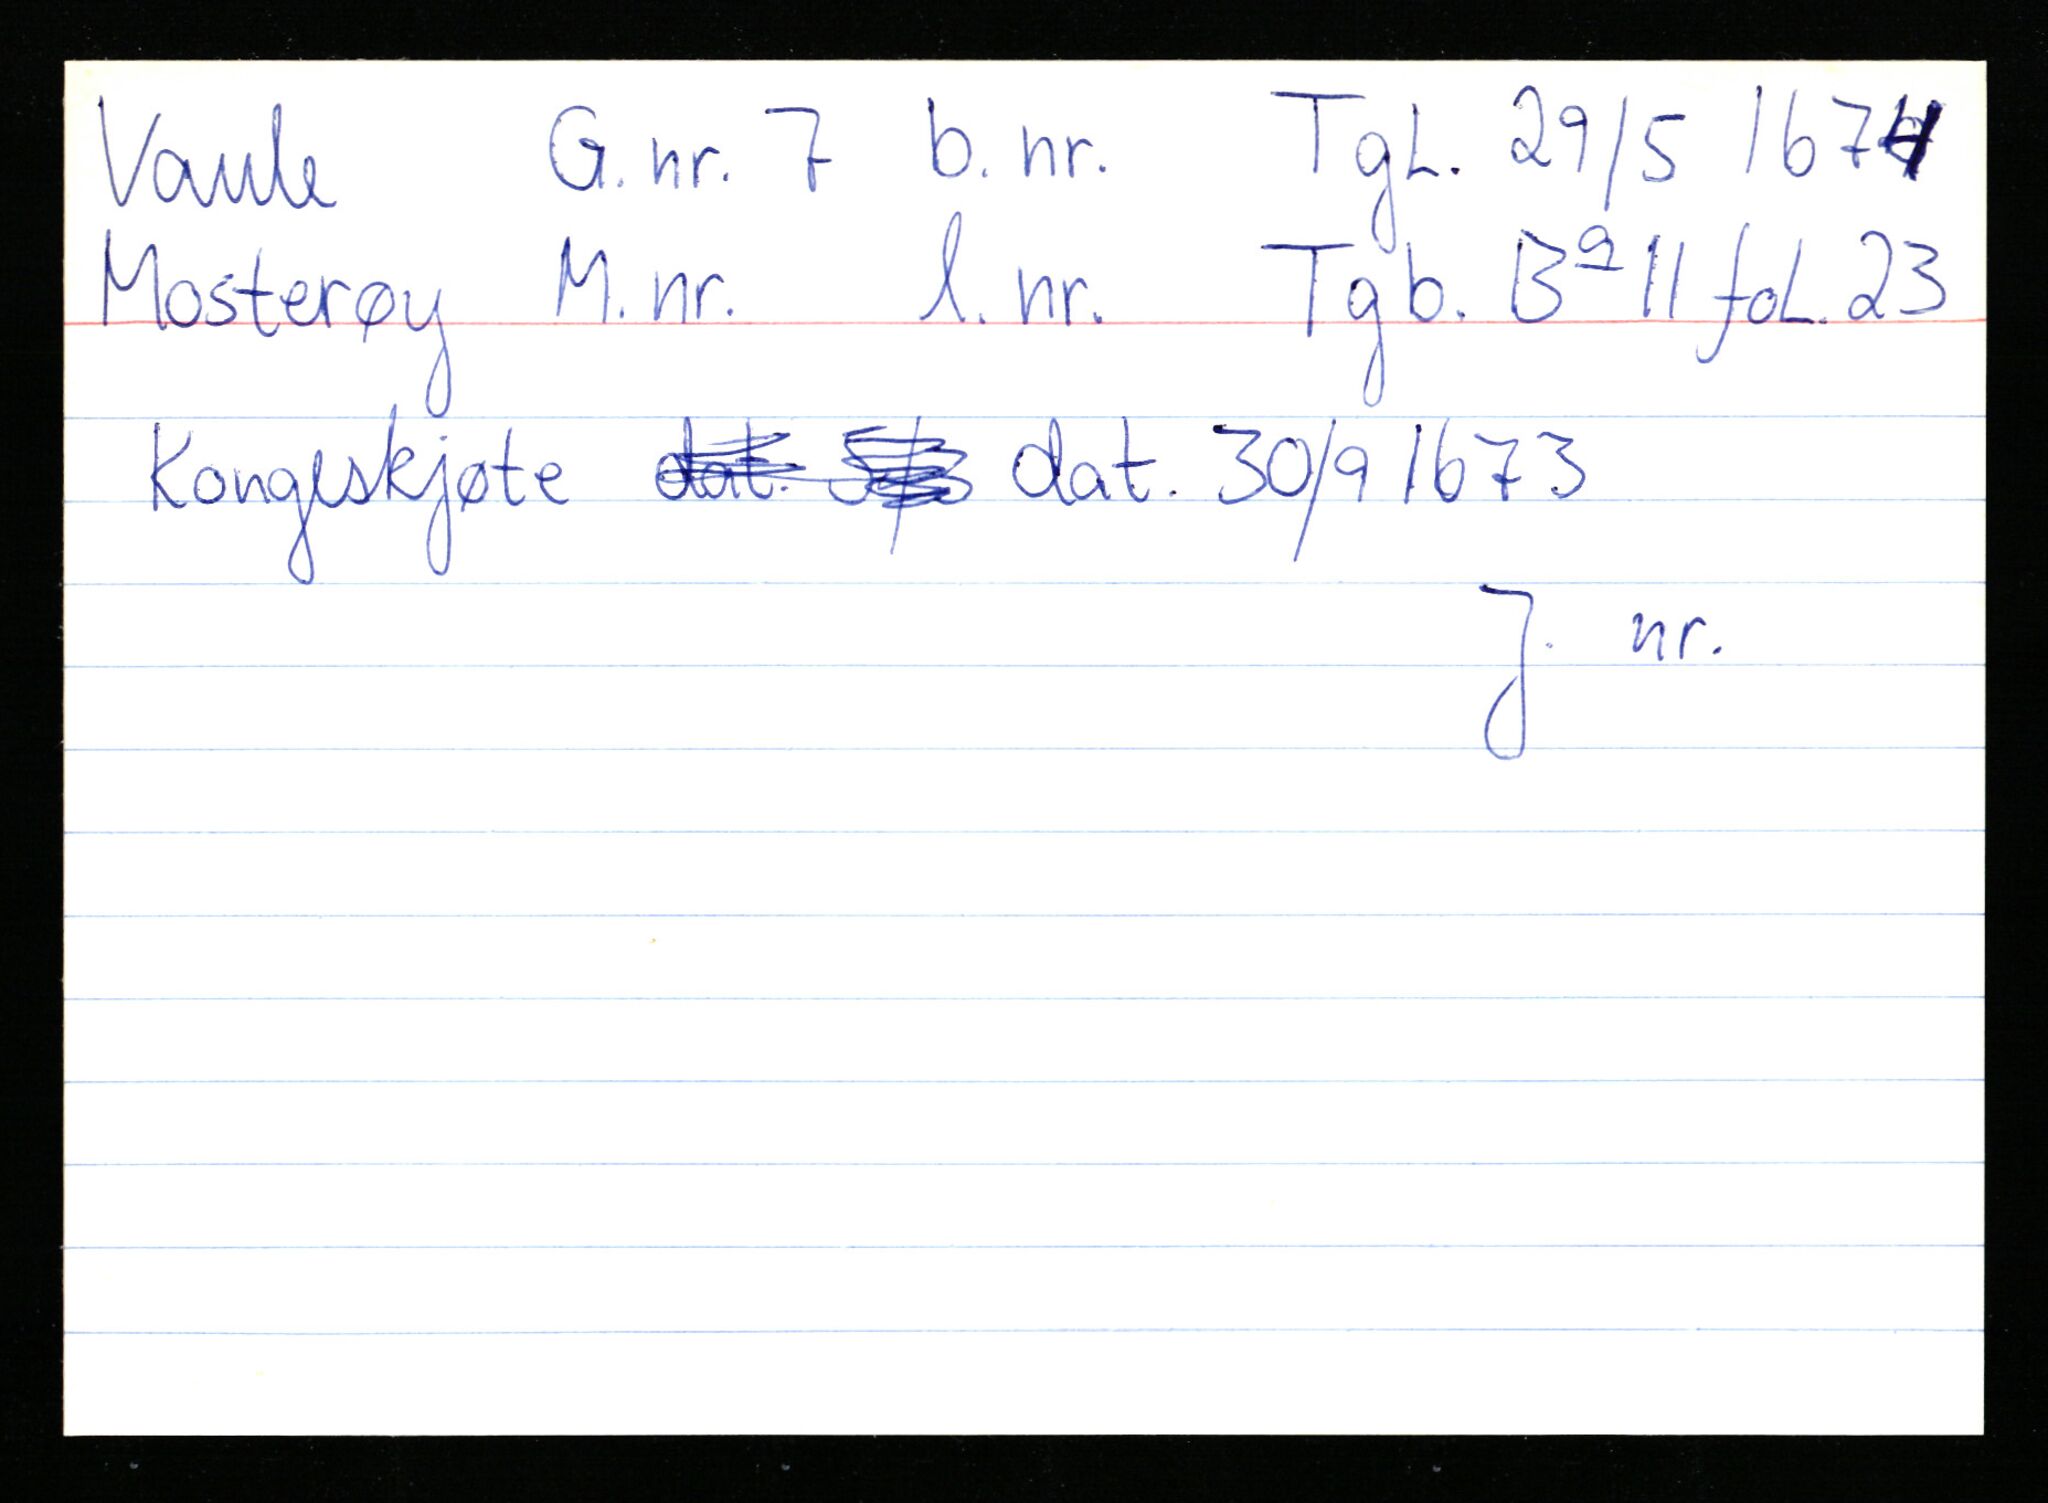 Vaule G. nr. 7 b. nr. TgL. 29/5 1674
Mosterøy M. nr. l. nr. Tgb. Bª 11 foL. 23
Kongeskjøte dat. dat. 30/9 1673
J. nr.